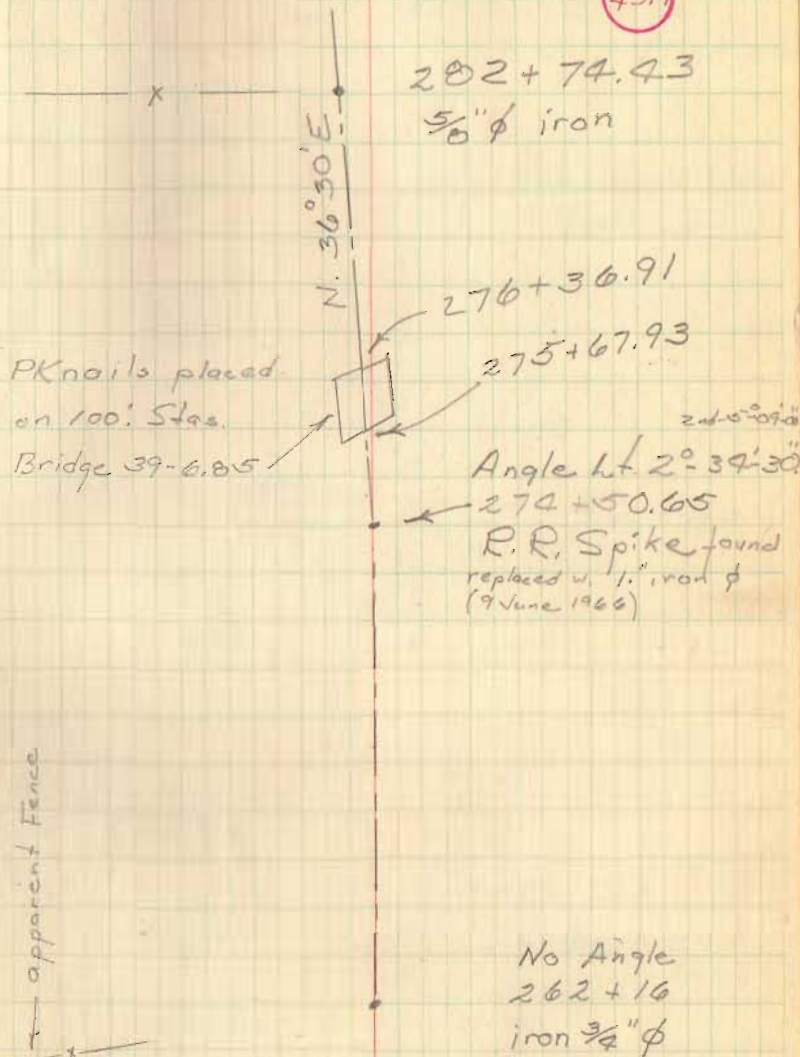 282 + 74.43
5/8" ϕ iron
N. 36° 30' E
276 + 36.91
275 + 67.93
PK nails placed
on 100' Stas.
Bridge 39-6.85
Angle Lt. 2°-34'-30"
274 + 50.65
R.R. Spike found
replaced w. 1" iron ϕ
(9 June 1966)
apparent Fence
No Angle
262 + 16
iron 3/4" ϕ